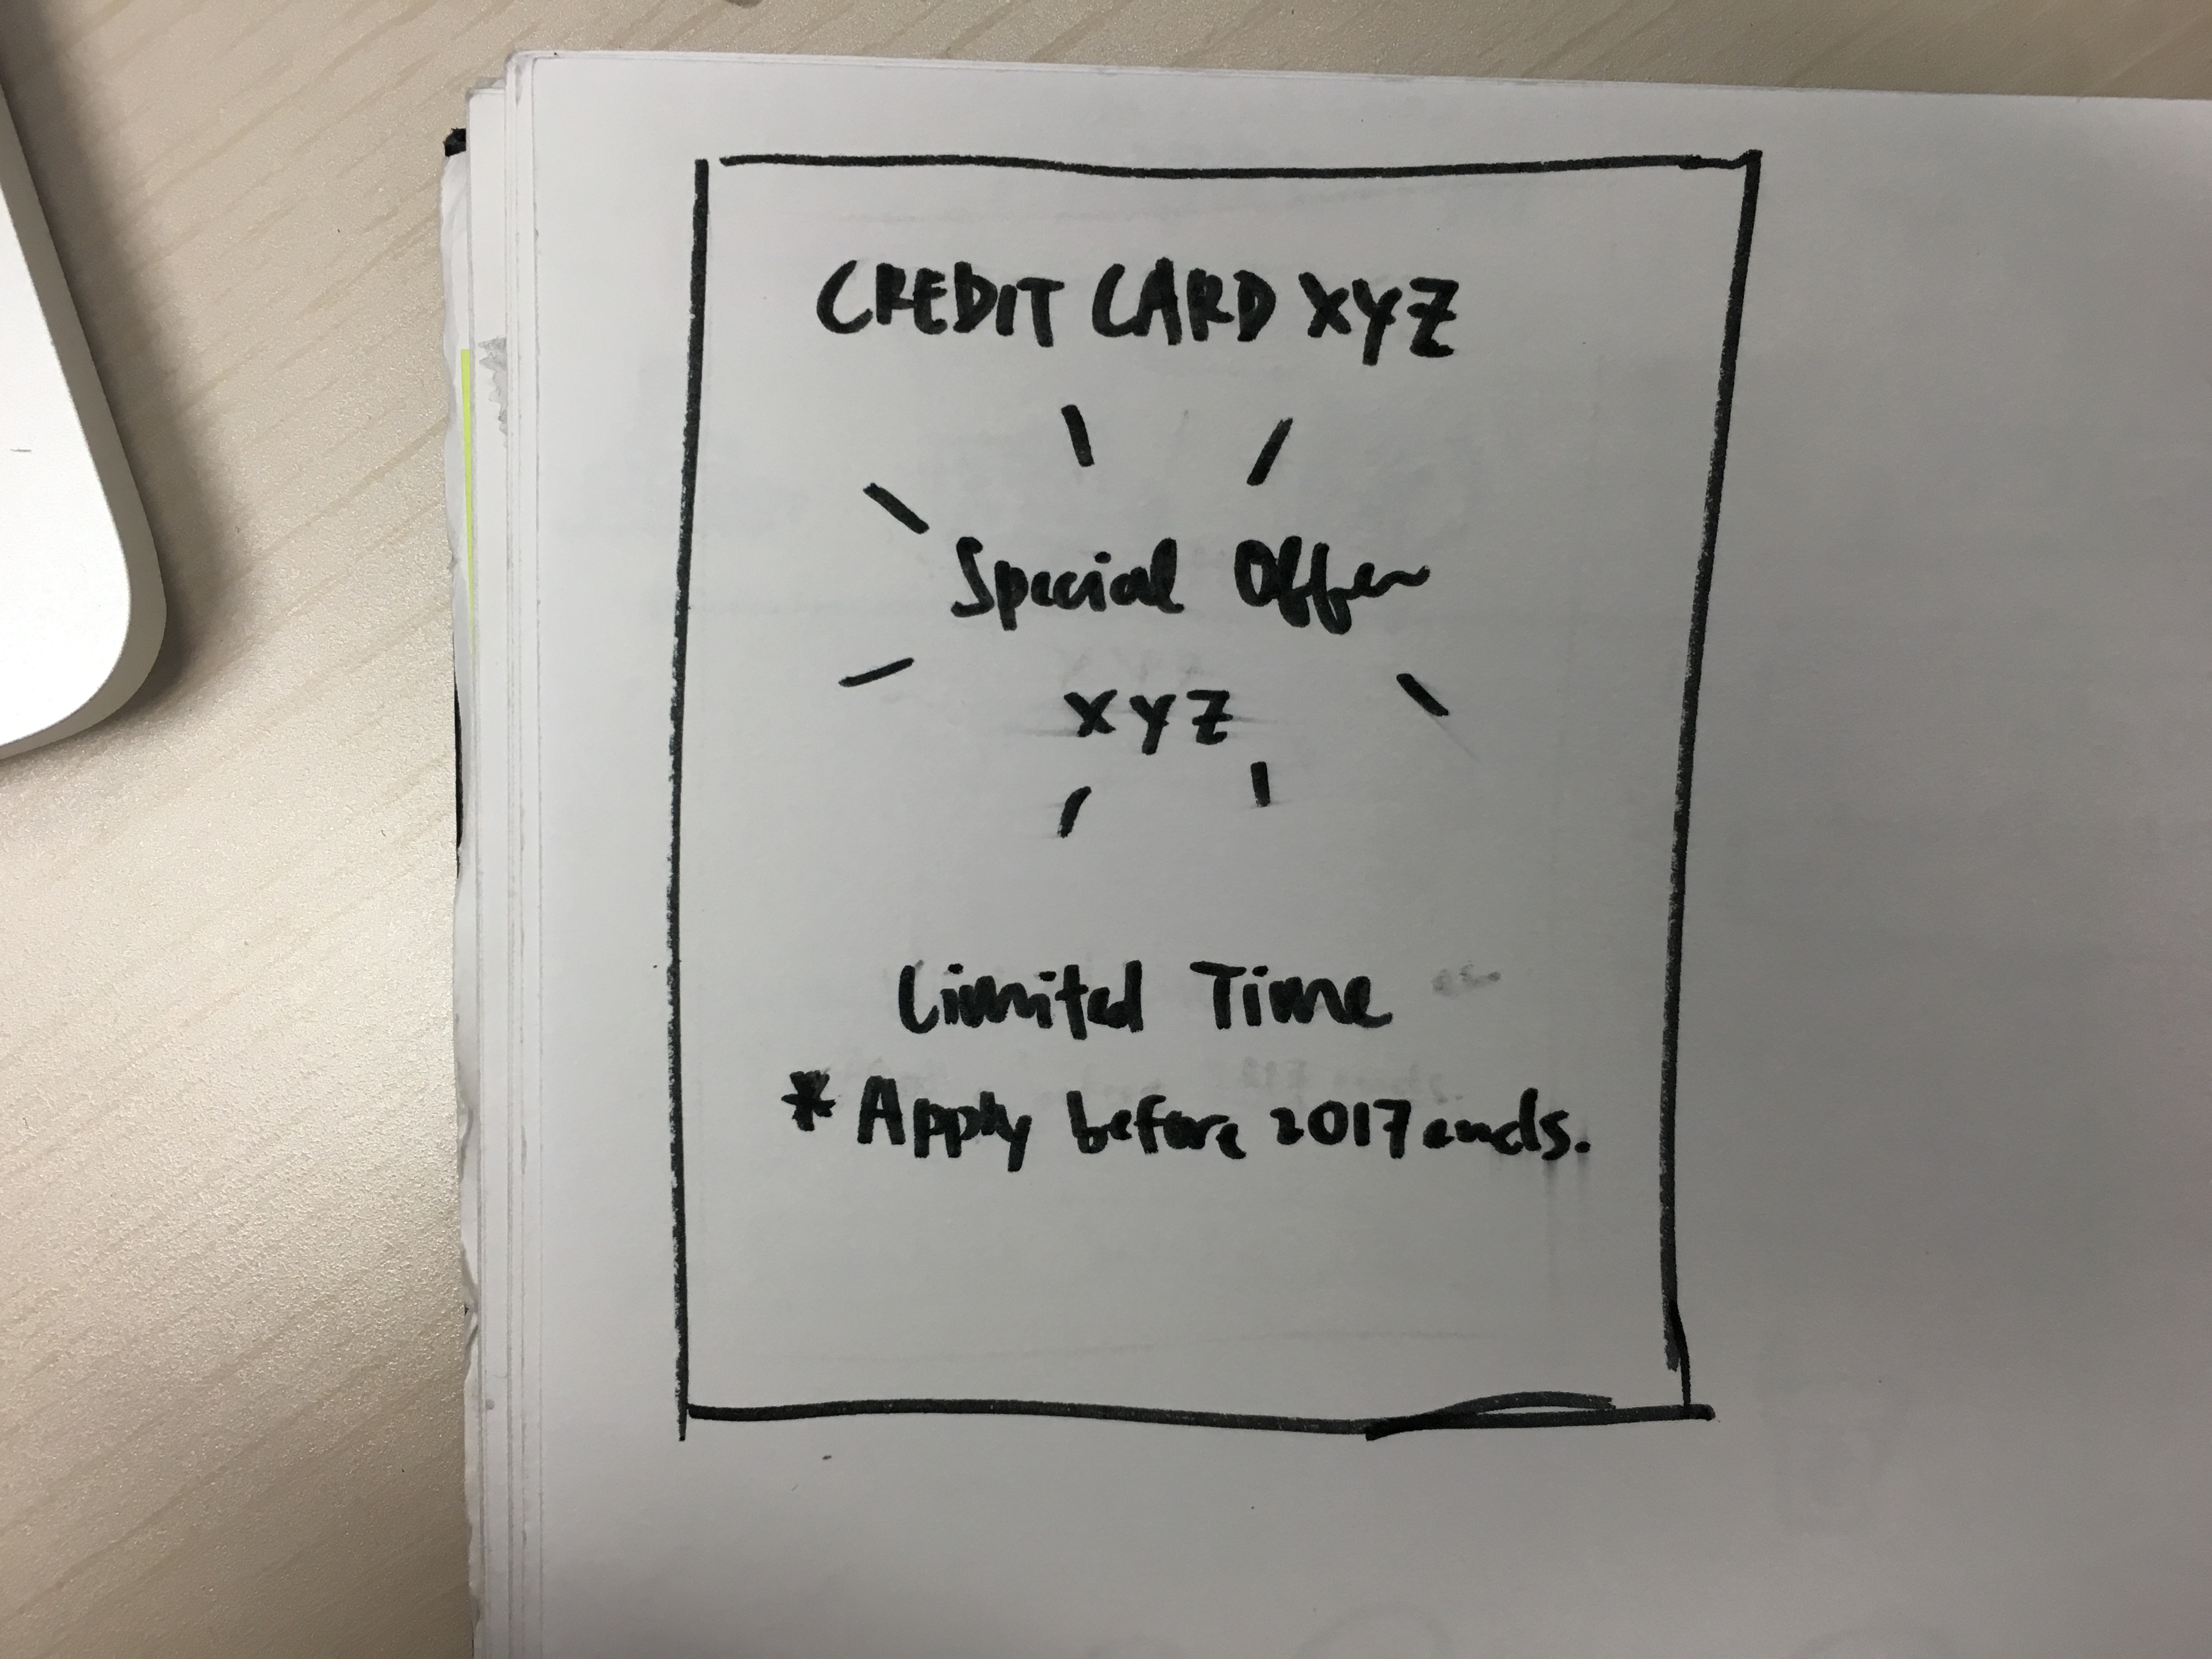 CREDIT CARD XYZ
Special Offer
XYZ
Limited Time
* Apply before 2017 ends.